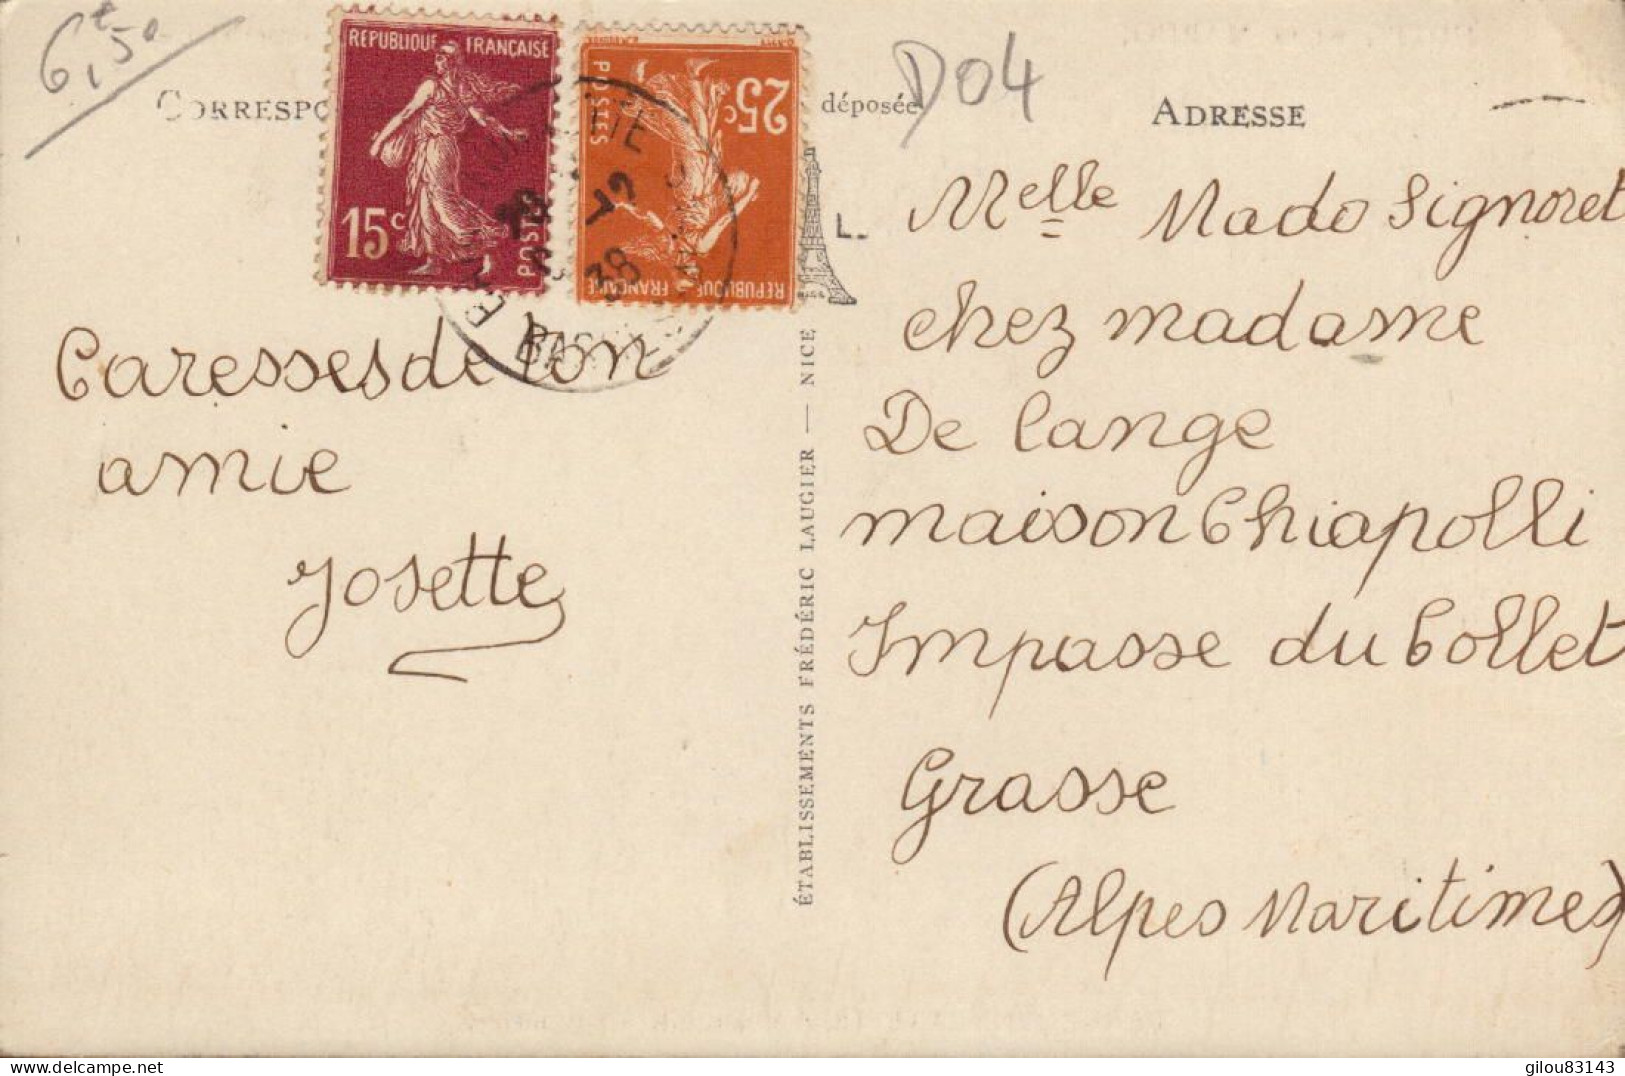 6,50
D04
CORRESPO
déposée
ADRESSE
REPUBLIQUE FRANÇAISE
15c
POSTES
25c
POSTES
REPUBLIQUE FRANÇAISE
38
L.
Caresses de ton
amie
Josette
ÉTABLISSEMENTS FRÉDÉRIC LAUGIER — NICE
Melle Mado Signoret
chez madame
De Lange
maison Chiapolli
Impasse du Collet
Grasse
(Alpes Maritimes)
delcampe.net
gilou83143